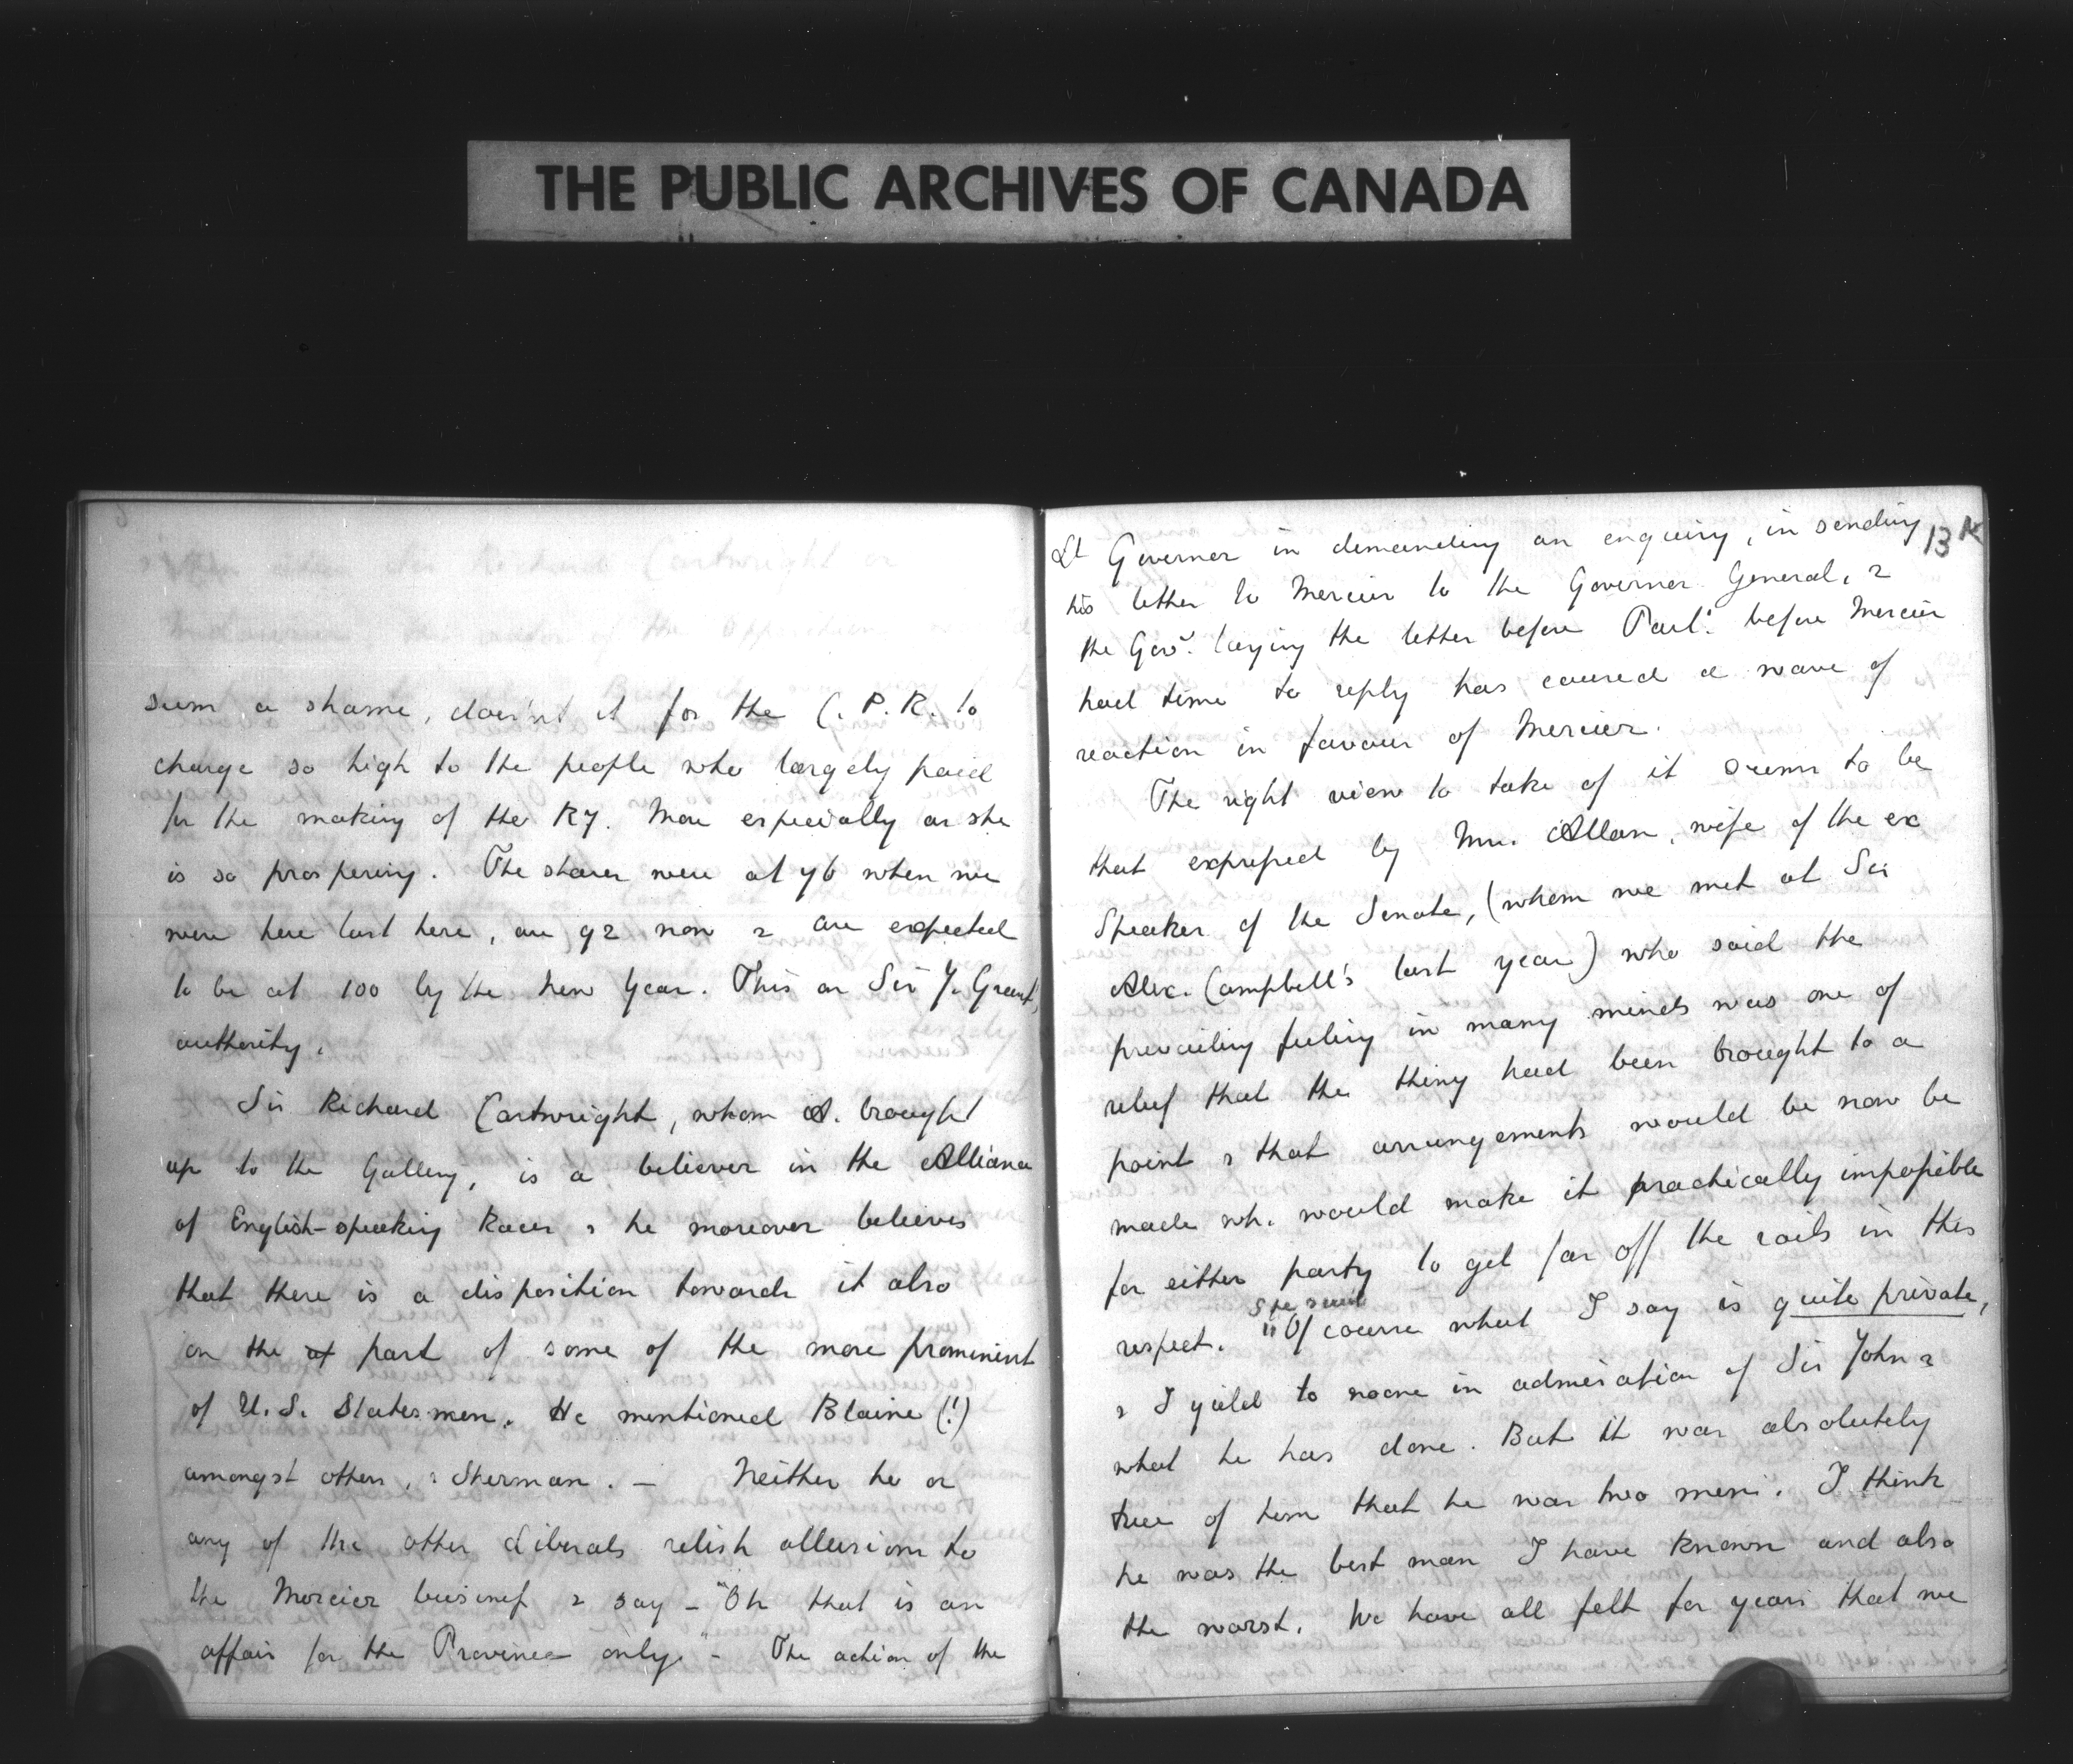 THE PUBLIC ARCHIVES OF CANADA
seem a shame, doesn't it for the C. P. R. to
charge so high to the people who largely paid
for the making of the Ry. More especially as she
is so prospering. The shares were at 76 when we
were here last here, are 92 now & are expected
to be at 100 by the New Year. This on Sir J. Grant's
authority.
Sir Richard Cartwright, whom A. brought
up to the Gallery, is a believer in the Alliance
of English-speaking Races & he moreover believes
that there is a disposition towards it also
on the of part of some of the more prominent
of U.S. Statesmen. He mentioned Blaine (!)
amongst others, & Sherman. — Neither he or
any of the other Liberals relish allusions to
the Mercier business & say – "Oh that is an
affair for the Province only" – The action of the
13 K
Lt Governer in demanding an enquiry, in sending
his letter to Mercier to the Governer General, &
the Govt. laying the letter before Parlt. before Mercier
had time to reply has caused a wave of
reaction in favour of Mercier.
The right view to take of it seems to be
that expressed by Mrs. Allan, wife of the ex
Speaker of the Senate, (whom we met at Sir
Alex. Campbell's last year) who said the
prevailing feeling in many minds was one of
relief that the thing had been brought to a
point & that arrangements would be now be
made wh. would make it practically impossible
for either party to get far off the rails in this
respect. "Of course what I say is quite private,
she said
& I yield to noone in admiration of Sir John &
what he has done. But it was absolutely
true of him that he was two men. I think
he was the best man I have known and also
the worst. We have all felt for years that we